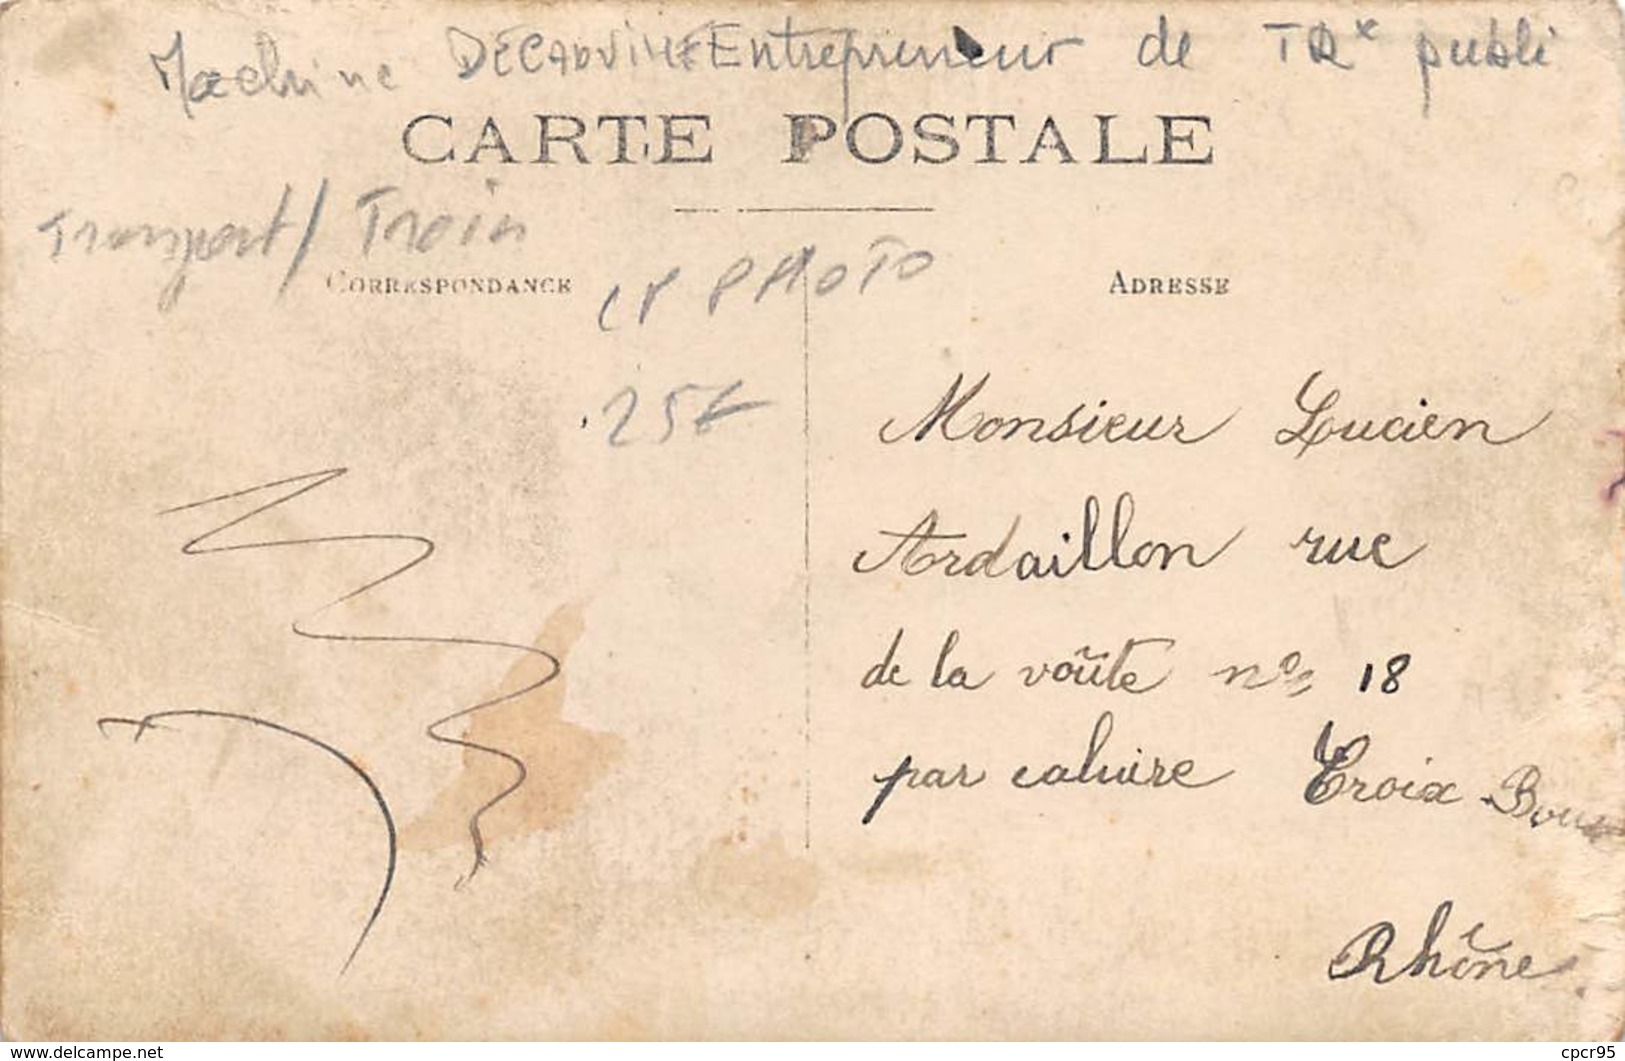 Machine DECAUVILLE Entrepreneur de TRx publi
CARTE POSTALE
Transport / Train
CORRESPONDANCE
CP PHOTO
25€
ADRESSE
Monsieur Lucien
Ardaillon rue
de la voûte no 18
par caluire Croix-Rous
Rhône
www.delcampe.net
cpcr95